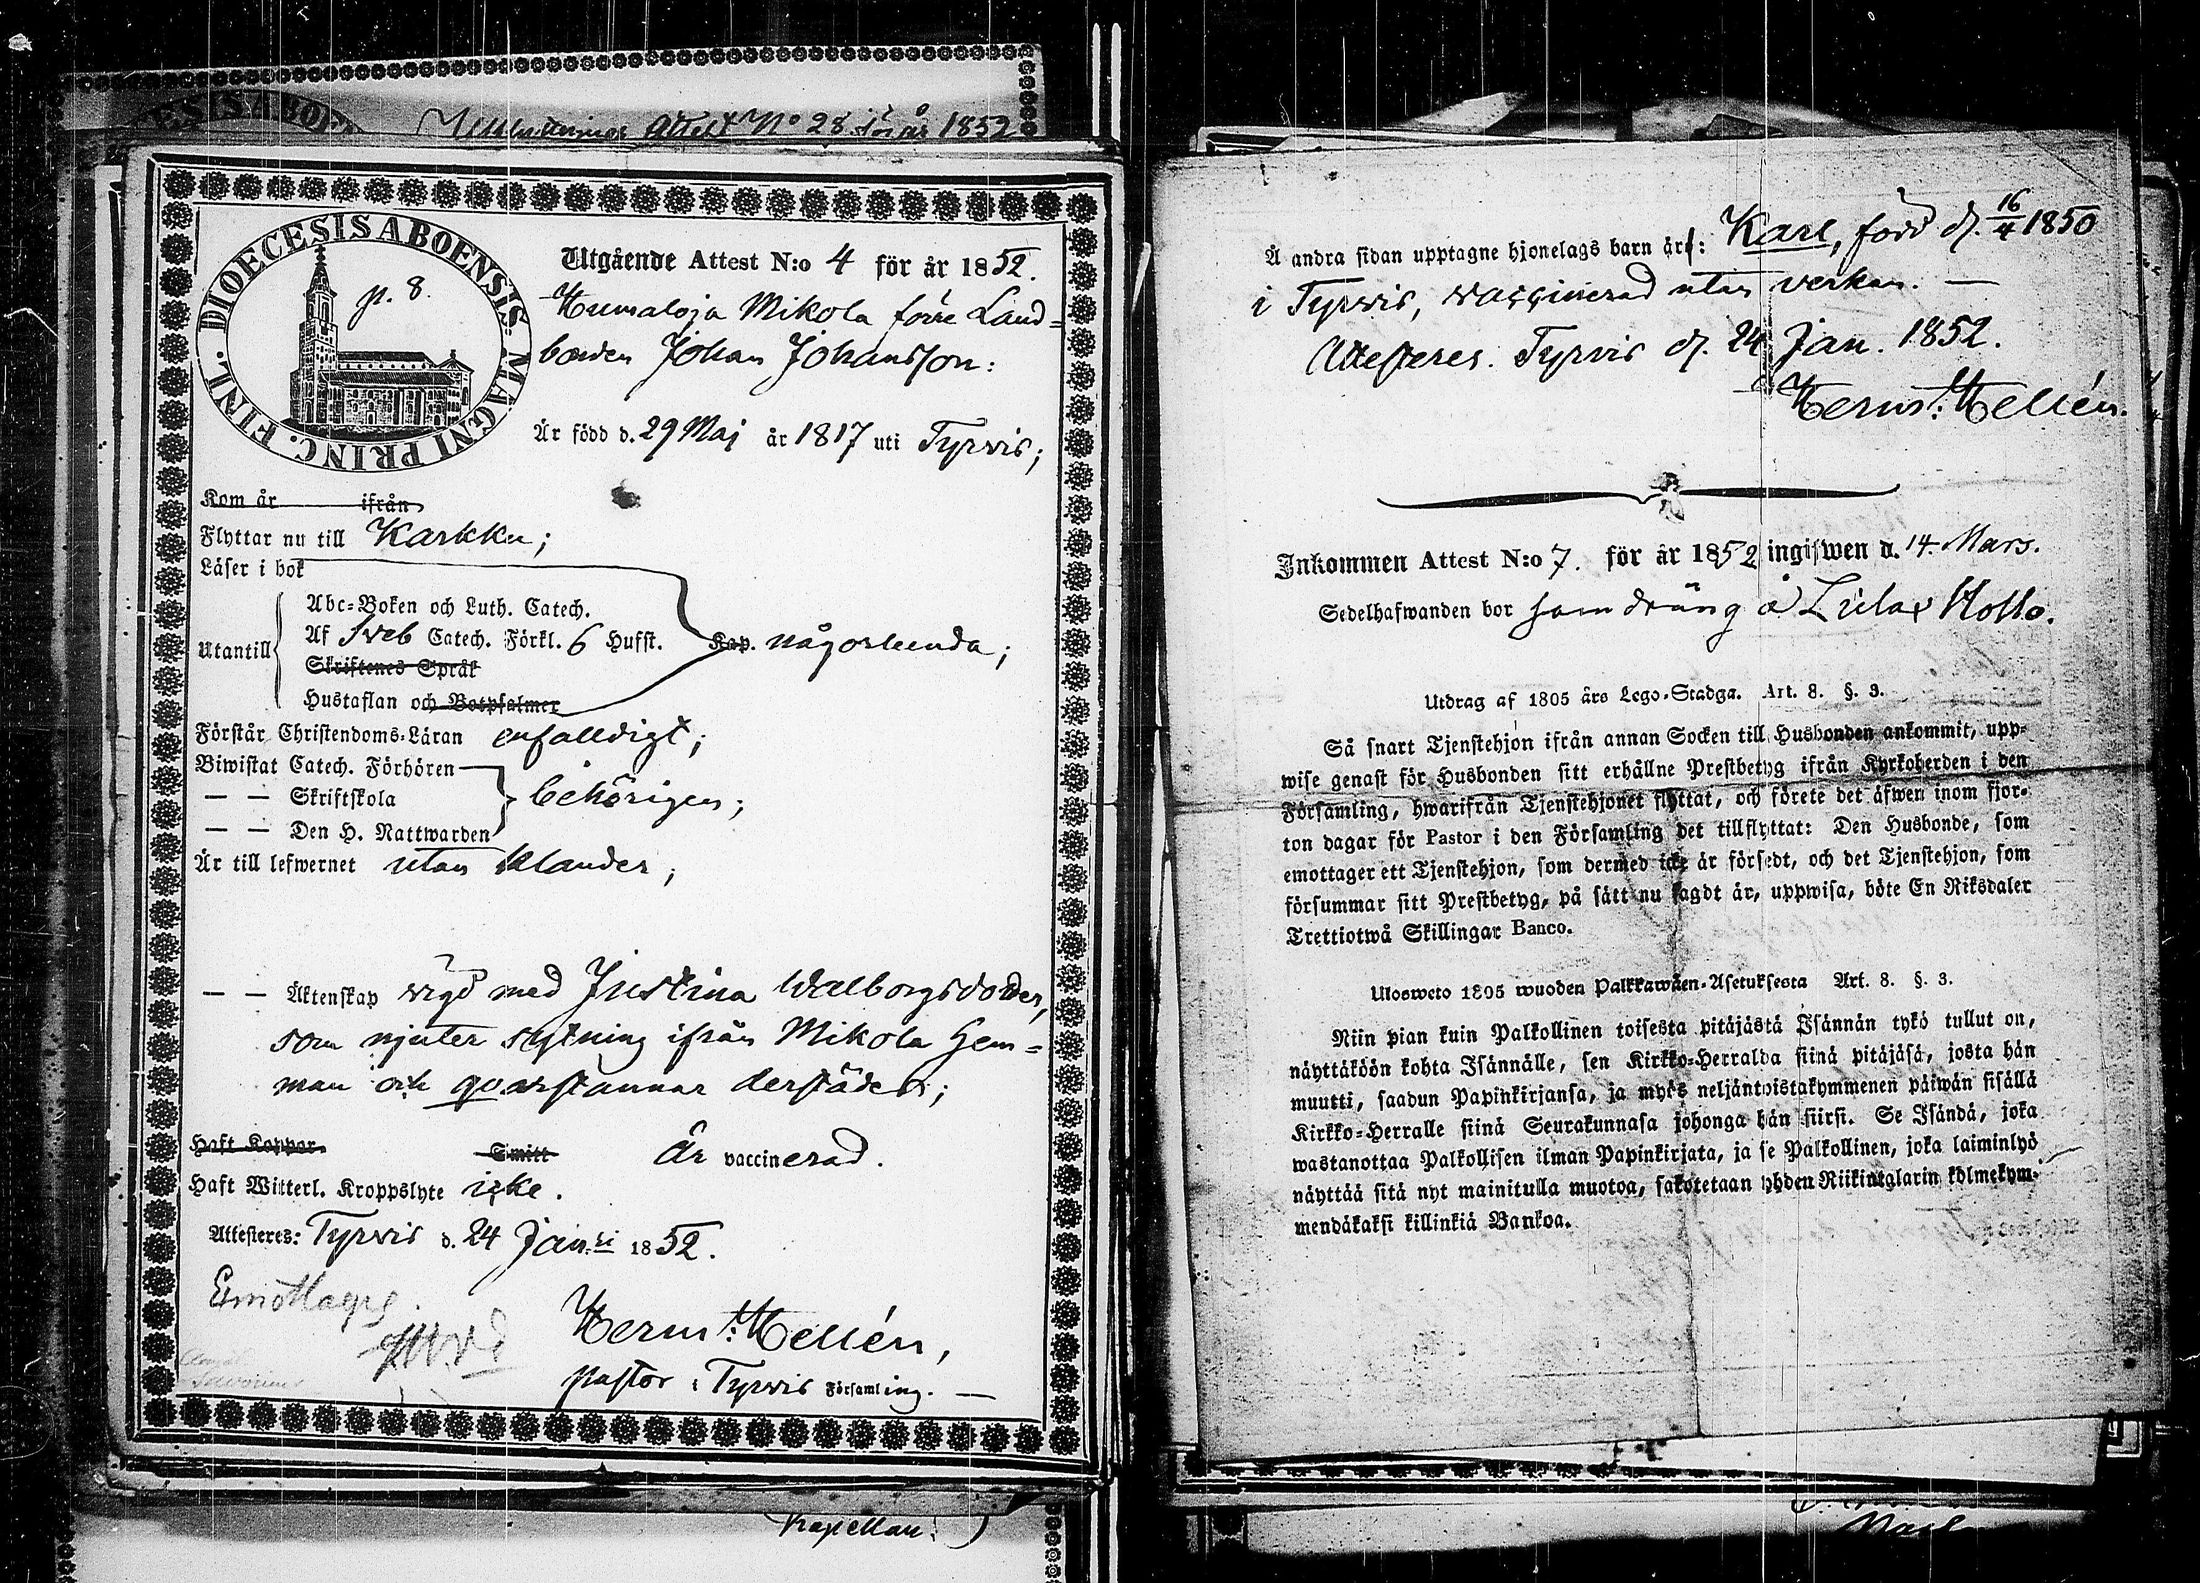 Attest No 28 för år 1852
DIOECESIS ABOENSIS. MAGNI PRINC. FINL.
p. 8.
Utgående Attest N:o 4 för år 1852.
Humaloja Mikola förre Land=
bonden Johan Johansson:
Är född d. 29 Maj år 1817 uti Tyrvis;
Kom år ifrån
Flyttar nu till Karkku;
Läser i bok
Abc-Boken och Luth. Catech.
Utantill Af Sveb Catech. Förkl. 6 Hufst. Kap. någorlunda;
Skriftenes Språk
Hustaflan och Botpsalmer
Förstår Christendoms-Läran enfalldigt;
Biwistat Catech. Förhören
— — Skriftskola behörigen;
— — Den H. Nattwarden
Är till lefwernet utan klander;
— — Äktenskap vigd med Justina Walborgsdotter,
som njuter sytning ifrån Mikola Hem=
man och qvarstannar derstädes;
Haft Koppor. Smitt Är vaccinerad.
Haft Witterl. Kroppslyte icke.
Attesteres: Tyrvis d. 24 Jan:ri 1852.
Emottagit.
Herm: Hellén,
Pastor i Tyrvis Församling. —
Kapellan.
Å andra sidan upptagne hjonelags barn är: Karl, född d. 16/4 1850
i Tyrvis, vaccinerad utan verkan. —
Attesteres. Tyrvis d. 24 Jan. 1852.
Herm: Hellén.
Inkommen Attest N:o 7. för år 1852 ingifwen d. 14. Mars.
Sedelhafwanden bor som dräng å Hollo.
Utdrag af 1805 års Lego-Stadga. Art. 8. §. 3.
Så snart Tjenstehjon ifrån annan Socken till Husbonden ankommit, upp-
wise genast för Husbonden sitt erhållne Prestbetyg ifrån Kyrkoherden i den
Församling, hwarifrån Tjenstehjonet flyttat, och förete det äfwen inom fjor-
ton dagar för Pastor i den Församling det tillflyttat: Den Husbonde, som
emottager ett Tjenstehjon, som dermed icke är försedt, och det Tjenstehjon, som
försummar sitt Prestbetyg, på sätt nu sagdt är, uppwisa, böte En Riksdaler
Trettiotwå Skillingar Banco.
Ulosweto 1805 wuoden Palkkawäen-Asetuksesta Art. 8. §. 3.
Niin pian kuin Palkollinen toisesta pitäjästä Isännän tykö tullut on,
näyttäköön kohta Isännälle, sen Kirkko-Herralda siinä pitäjäsä, josta hän
muutti, saadun Papinkirjansa, ja myös neljäntoistakymmenen päiwän sisällä
Kirkko-Herralle siinä Seurakunnasa johonga hän siirsi. Se Isändä, joka
wastanottaa Palkollisen ilman Papinkirjata, ja se Palkollinen, joka laiminlyö
näyttää sitä nyt mainitulla muotoa, sakotetaan yhden Riikintalarin kolmekym-
mendäkaksi killinkiä Bankoa.